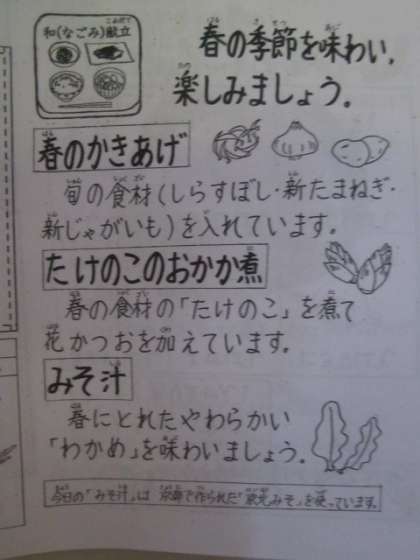 和(なごみ)献立
春の季節を味わい、
楽しみましょう。
春のかきあげ
旬の食材(しらすぼし・新たまねぎ・
新じゃがいも)を入れています。
たけのこのおかか煮
春の食材の「たけのこ」を煮て
花かつおを加えています。
みそ汁
春にとれたやわらかい
「わかめ」を味わいましょう。
今日の「みそ汁」は 京都で作られた「京光みそ」を使っています。